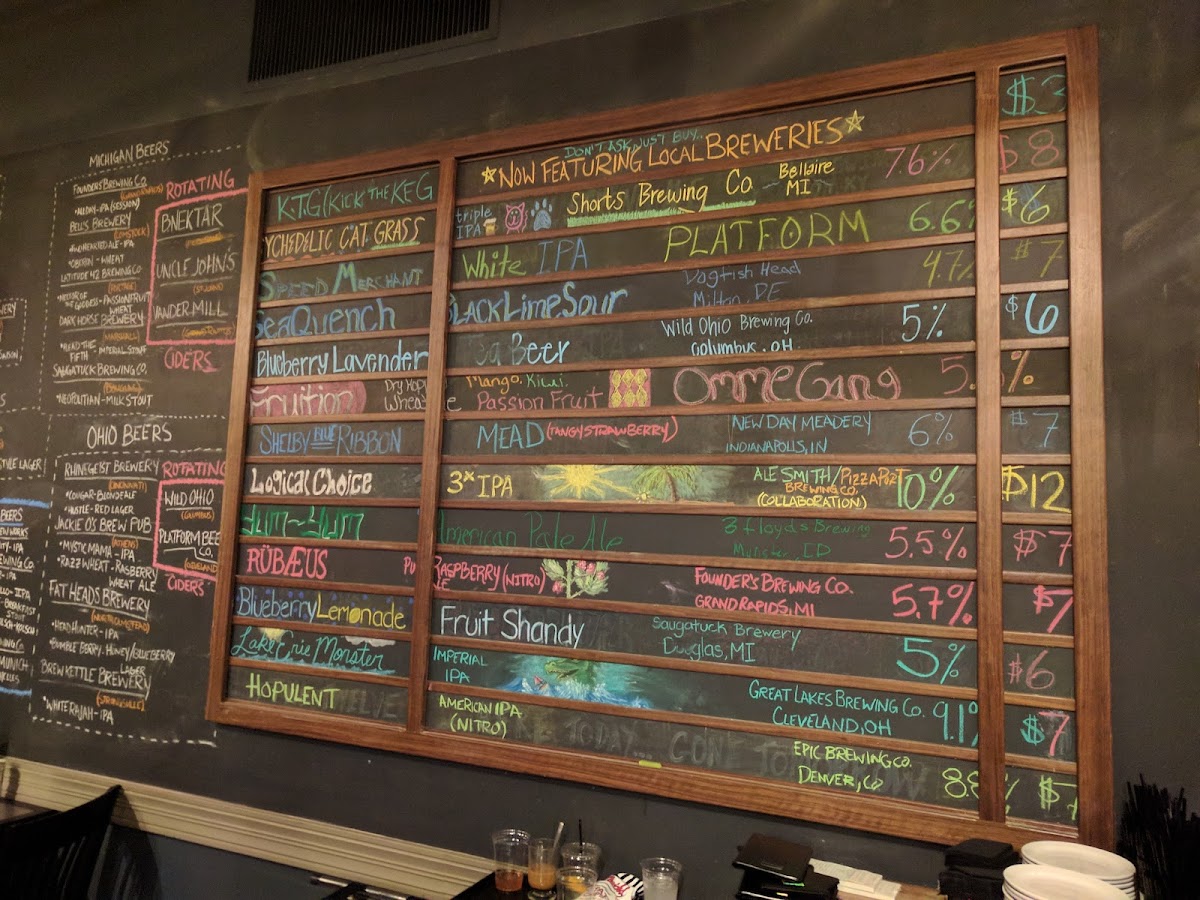 MICHIGAN BEERS
FOUNDER'S BREWING CO.
ALL DAY-IPA (SESSION)
BELL'S BREWERY
(COMSTOCK)
OBERON - WHEAT
LATITUDE 42 BREWING CO
(PORTAGE)
NECTOR OF
THE GODESS - PASSIONFRUIT
WHEAT
DARK HORSE BREWERY
(MARSHALL)
READ THE
FIFTH - IMPERIAL STOUT
SAUGATUCK BREWING CO.
(DOUGLAS)
NEOPOLITIAN - MILK STOUT
ROTATING
BNEKTAR
UNCLE JOHN'S
(ST. JOHNS)
VANDER MILL
CIDERS
OHIO BEERS
RHINEGEIST BREWERY
(CINCINNATI)
COUGAR-BLONDE ALE
HUSTLE - RED LAGER
JACKIE O'S BREW PUB
(ATHENS)
MYSTIC MAMA - IPA
RAZZ WHEAT - RASBERRY
WHEAT ALE
FAT HEADS BREWERY
(NORTH OLMSTEAD)
HEAD HUNTER - IPA
BUMBLE BERRY - HONEY/BLUEBERRY
LAGER
BREW KETTLE BREWERY
(STRONGSVILLE)
WHITE RAJAH - IPA
ROTATING
WILD OHIO
(COLUMBUS)
PLATFORM BEE
CO.
(CLEVELAND
CIDERS
STYLE LAGER
BEERS
DON'T ASK JUST BUY..
NOW FEATURING LOCAL BREWERIES
K.T.G (KICK THE KEG
$3
YCHEDELIC CAT GRASS
triple IPA
Shorts Brewing Co
Bellaire MI
7.6%
$8
SPEED MERCHANT
White IPA
PLATFORM
6.6%
$6
SeaQuench
BLACK LIME SOUR
Dogfish Head
Milton, DE
4.7%
$7
Blueberry Lavender
Tea Beer
Wild Ohio Brewing Co.
Columbus, OH
5%
$6
Fruition
Dry Hopp
Wheat Ale
Mango, Kiwi,
Passion Fruit
OMMEGANG
5.3%
SHELBY BLUE RIBBON
MEAD (TANGY STRAWBERRY)
NEW DAY MEADERY
INDIANAPOLIS, IN
6%
$7
Logical Choice
3x IPA
ALE SMITH/PIZZA PORT
BREWING CO.
(COLLABORATION)
10%
$12
YUM-YUM
American Pale Ale
3 floyds Brewing
Munster, ID
5.5%
$7
RÜBÆUS
RASPBERRY (NITRO)
FOUNDER'S BREWING CO.
GRAND RAPIDS, MI
5.7%
$7
Blueberry Lemonade
Fruit Shandy
Saugatuck Brewery
Douglas, MI
5%
$6
Lake Erie Monster
IMPERIAL
IPA
GREAT LAKES BREWING CO.
CLEVELAND, OH
9.1%
$7
HOPULENT
AMERICAN IPA
(NITRO)
EPIC BREWING CO.
DENVER, CO
8.8%
$7